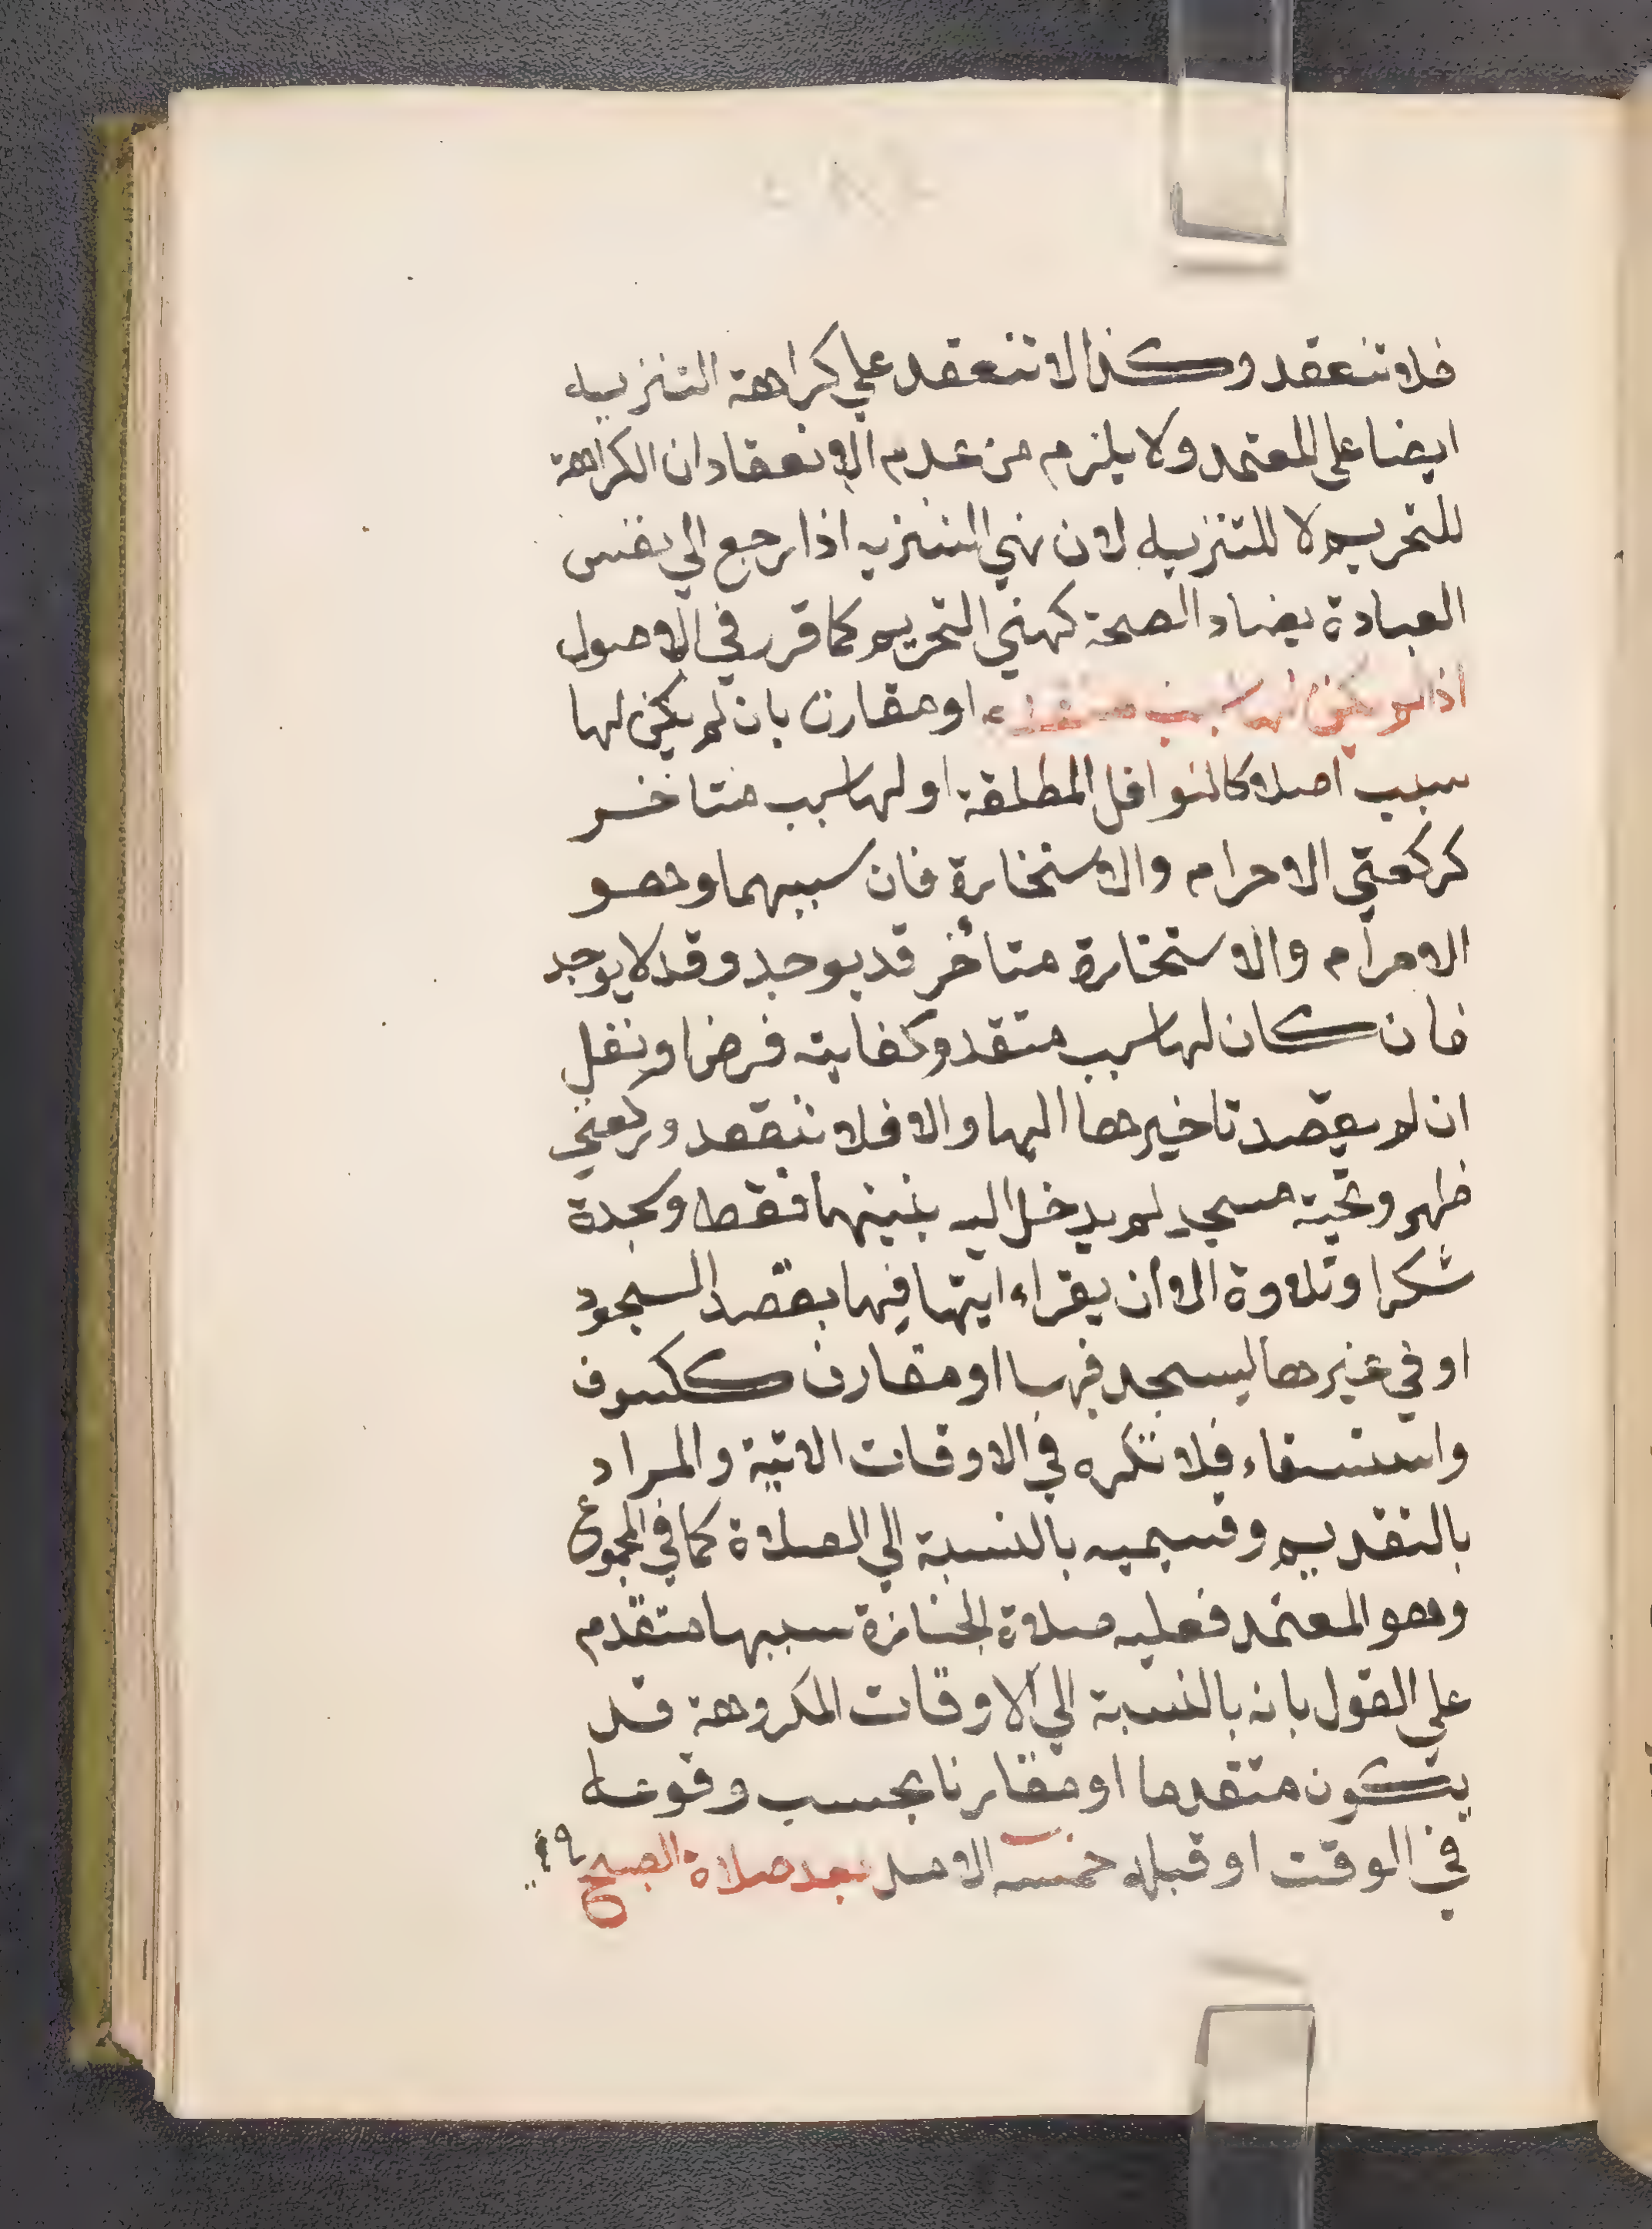 فلا تنعقد وكذا لا تنعقد علي كراهة التنزيه
ايضا على المعتمد ولا يلزم من عدم الانعقاد ان الكراهة
للتحريم لا للتنزيه لان نهي التنزيه اذا رجع الي نفس
العبادة يضاد الصحة كنهي التحريم كما قرر في الاصول
اذا لم يكن لها سبب متقدم او مقارن بان لم يكن لها
سبب اصلا كالنوافل المطلقة او لها سبب متاخر
كركعتي الاحرام والاستخارة فان سببهما وهو
الاحرام والاستخارة متاخر قد يوجد وقد لا يوجد
فان كان لها سبب متقدم كفايته فرض او نفل
ان لم يقصد تاخيرها اليها والا فلا تنعقد وركعتي
طهر وتحية مسجد لم يدخل اليه بنيتهما فقط وسجدة
شكر او تلاوة الا ان يقراء ايتها فيها بقصد السجود
او في غيرها ليسجد فيها او مقارن ككسوف
واستسقاء فلا تكره في الاوقات الاتية والمراد
بالتقديم وقسيميه بالنسبة الي الصلاة كما في المجموع
وهو المعتمد فعليه صلاة الجنازة سببها متقدم
علي القول بانه بالنسبة الي الاوقات المكروهة قد
يتكون متقدما او مقارنا بحسب وقوعه
في الوقت او قبله خمسه الاصل بعد صلاة الصبح